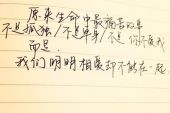 原来生命中最痛苦的事
不是孤独/不是单身/不是 你不爱我
而是.
我们明明相爱却不能在一起